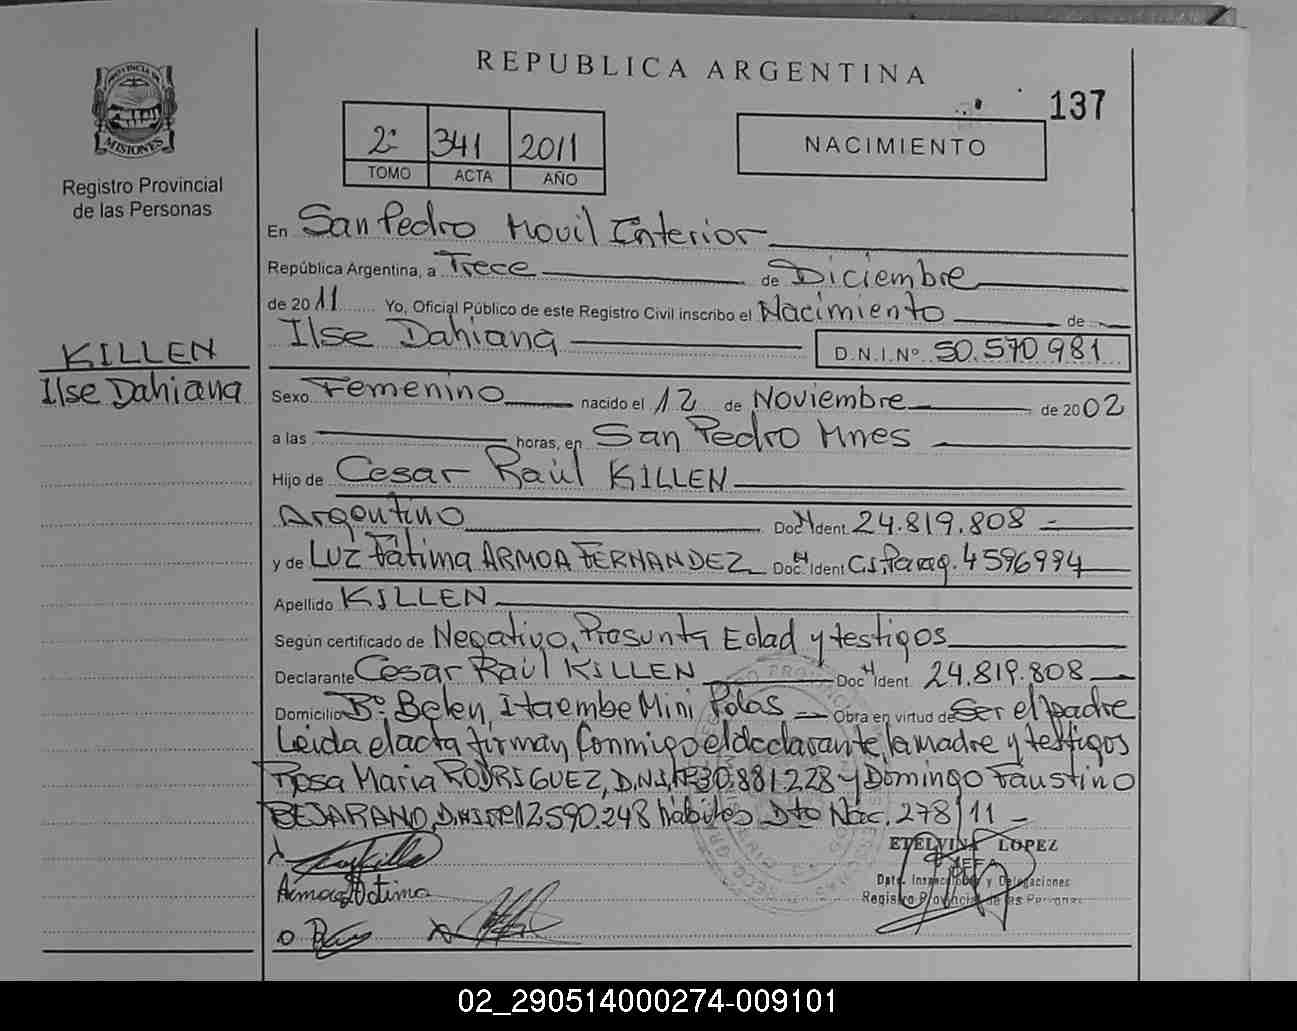 REPUBLICA ARGENTINA
137
PROVINCIA DE
MISIONES
Registro Provincial
de las Personas
2º 341 2011
TOMO ACTA AÑO
NACIMIENTO
En San Pedro Movil Interior
República Argentina, a Trece de Diciembre
de 2011 Yo, Oficial Público de este Registro Civil inscribo el Nacimiento de
Ilse Dahiana D.N.I.Nº 50.570.981
KILLEN
Ilse Dahiana
Sexo Femenino nacido el 12 de Noviembre de 2002
a las horas, en San Pedro Mnes
Hijo de Cesar Raúl KILLEN
Argentino Doc. Ident. 24.819.808
y de Luz Fátima ARMOA FERNANDEZ Doc. Ident C.I.Parag. 4596994
Apellido KILLEN
Según certificado de Negativo, Presunta Edad y testigos
Declarante Cesar Raúl KILLEN Doc. Ident. 24.819.808
Domicilio Bº Belen, Itaembe Mini Pdas Obra en virtud de Ser el padre
Leída el acta firman conmigo el declarante, la madre y testigos
Rosa Maria RODRIGUEZ, D.N.I.Nº 30.881.228 y Domingo Faustino
BEJARANO, D.N.I.Nº 12.590.248 hábiles Dto Nac. 278/11
ETELVINA LOPEZ
JEFA
Dpto. Inspecciones y Delegaciones
Registro Provincial de las Personas
Armoa Fatima
02_290514000274-009101